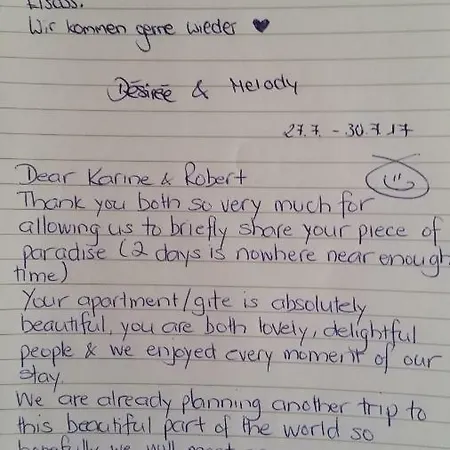 Elsass.
Wir kommen gerne wieder ♥
Désirée & Melody
27.7. - 30.7.17
Dear Karine & Robert
Thank you both so very much for
allowing us to briefly share your piece of
paradise (2 days is nowhere near enough
time)
Your apartment/gite is absolutely
beautiful, you are both lovely, delightful
people & we enjoyed every moment of our
stay.
We are already planning another trip to
this beautiful part of the world so
hopefully we will